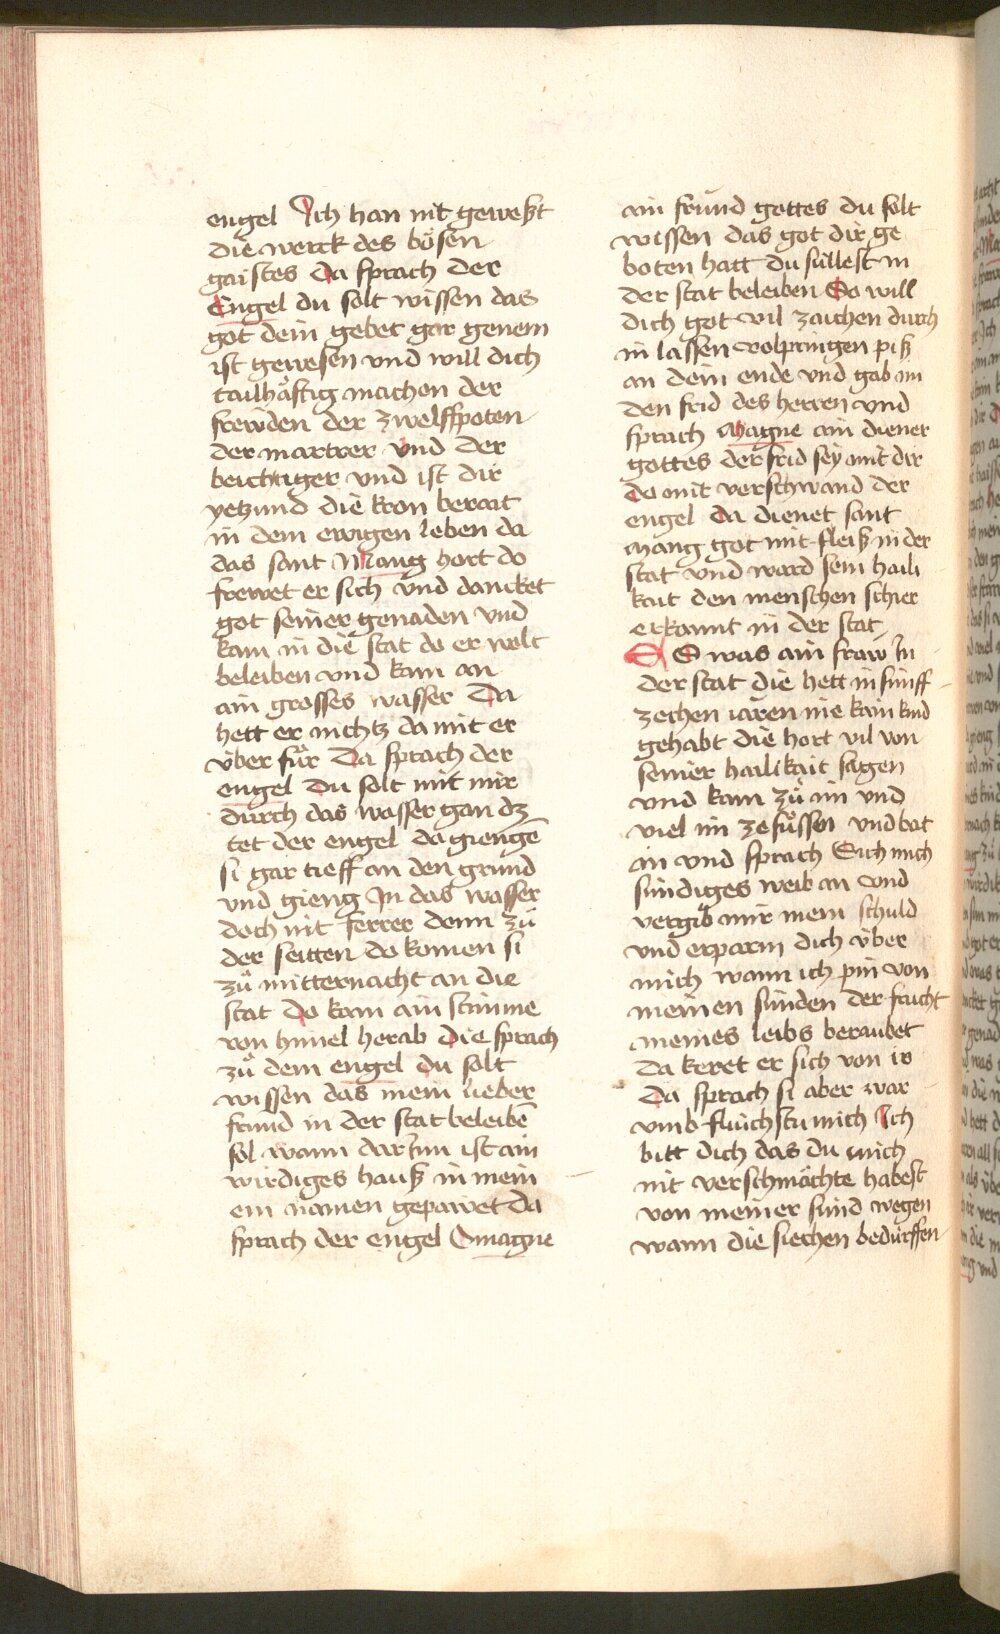 engel Ich han nit geweßt
die werck des bösen
gaistes Da sprach der
Engel du solt wissen das
got dein gebet gar genem
ist gewesen vnd will dich
tailhäftig machen der
frewden der zwelffpoten
der martrer vnd der
beichtiger vnd ist dir
yetzund die kron berait
in dem ewigen leben da
das sant Mang hort do
frewet er sich vnd dancket
got seiner genaden vnd
kam in die stat do er wolt
beleiben vnd kam an
ain grosses wasser Da
hett er nichtz da mit er
über für Da sprach der
engel Du solt mit mir
durch das wasser gan dz
tet der engel da giengē
si gar tieff an den grund
vnd gieng In das wasser
doch nit ferrer denn zů
der seitten do komen si
zů mitternacht an die
stat Do kam ain stimme
von himel herab Die sprach
zů dem engel du solt
wissen das mein lieber
frund in der stat beleibē
sol wann dar Inn ist ain
wirdiges hauß in mein
em namen gepawet Da
sprach der engel O magne
ain frund gottes du solt
wissen das got dir ge
boten hatt du süllest in
der stat beleiben So will
dich got vil zaichen durch
in lassen volpringen piß
an dein ende vnd gab im
den frid des herren vnd
sprach Magne ain diener
gottes der frid sey mit dir
Da mit verschwand der
engel Da dienet sant
mang got mit fleiß in der
stat vnd ward sein haili
kait den menschen schier
erkannt in der stat
Es was ain fraw In
der stat die hett in fünff
zechen iaren nie kain kind
gehabt die hort vil von
seiner hailikait sagen
vnd kam zů im vnd
viel im ze füssen vnd bat
in vnd sprach Sich mich
sündiges weib an vnd
vergib mir mein schuld
vnd erparm dich über
mich wann ich pin von
meinen sünden der frucht
meines leibs beraubet
Da keret er sich von ir
Da sprach si aber war
vmb fluchstu mich Ich
bitt dich das du mich
nit verschmächte habest
von meiner sünd wegen
wann die siechen bedürffen